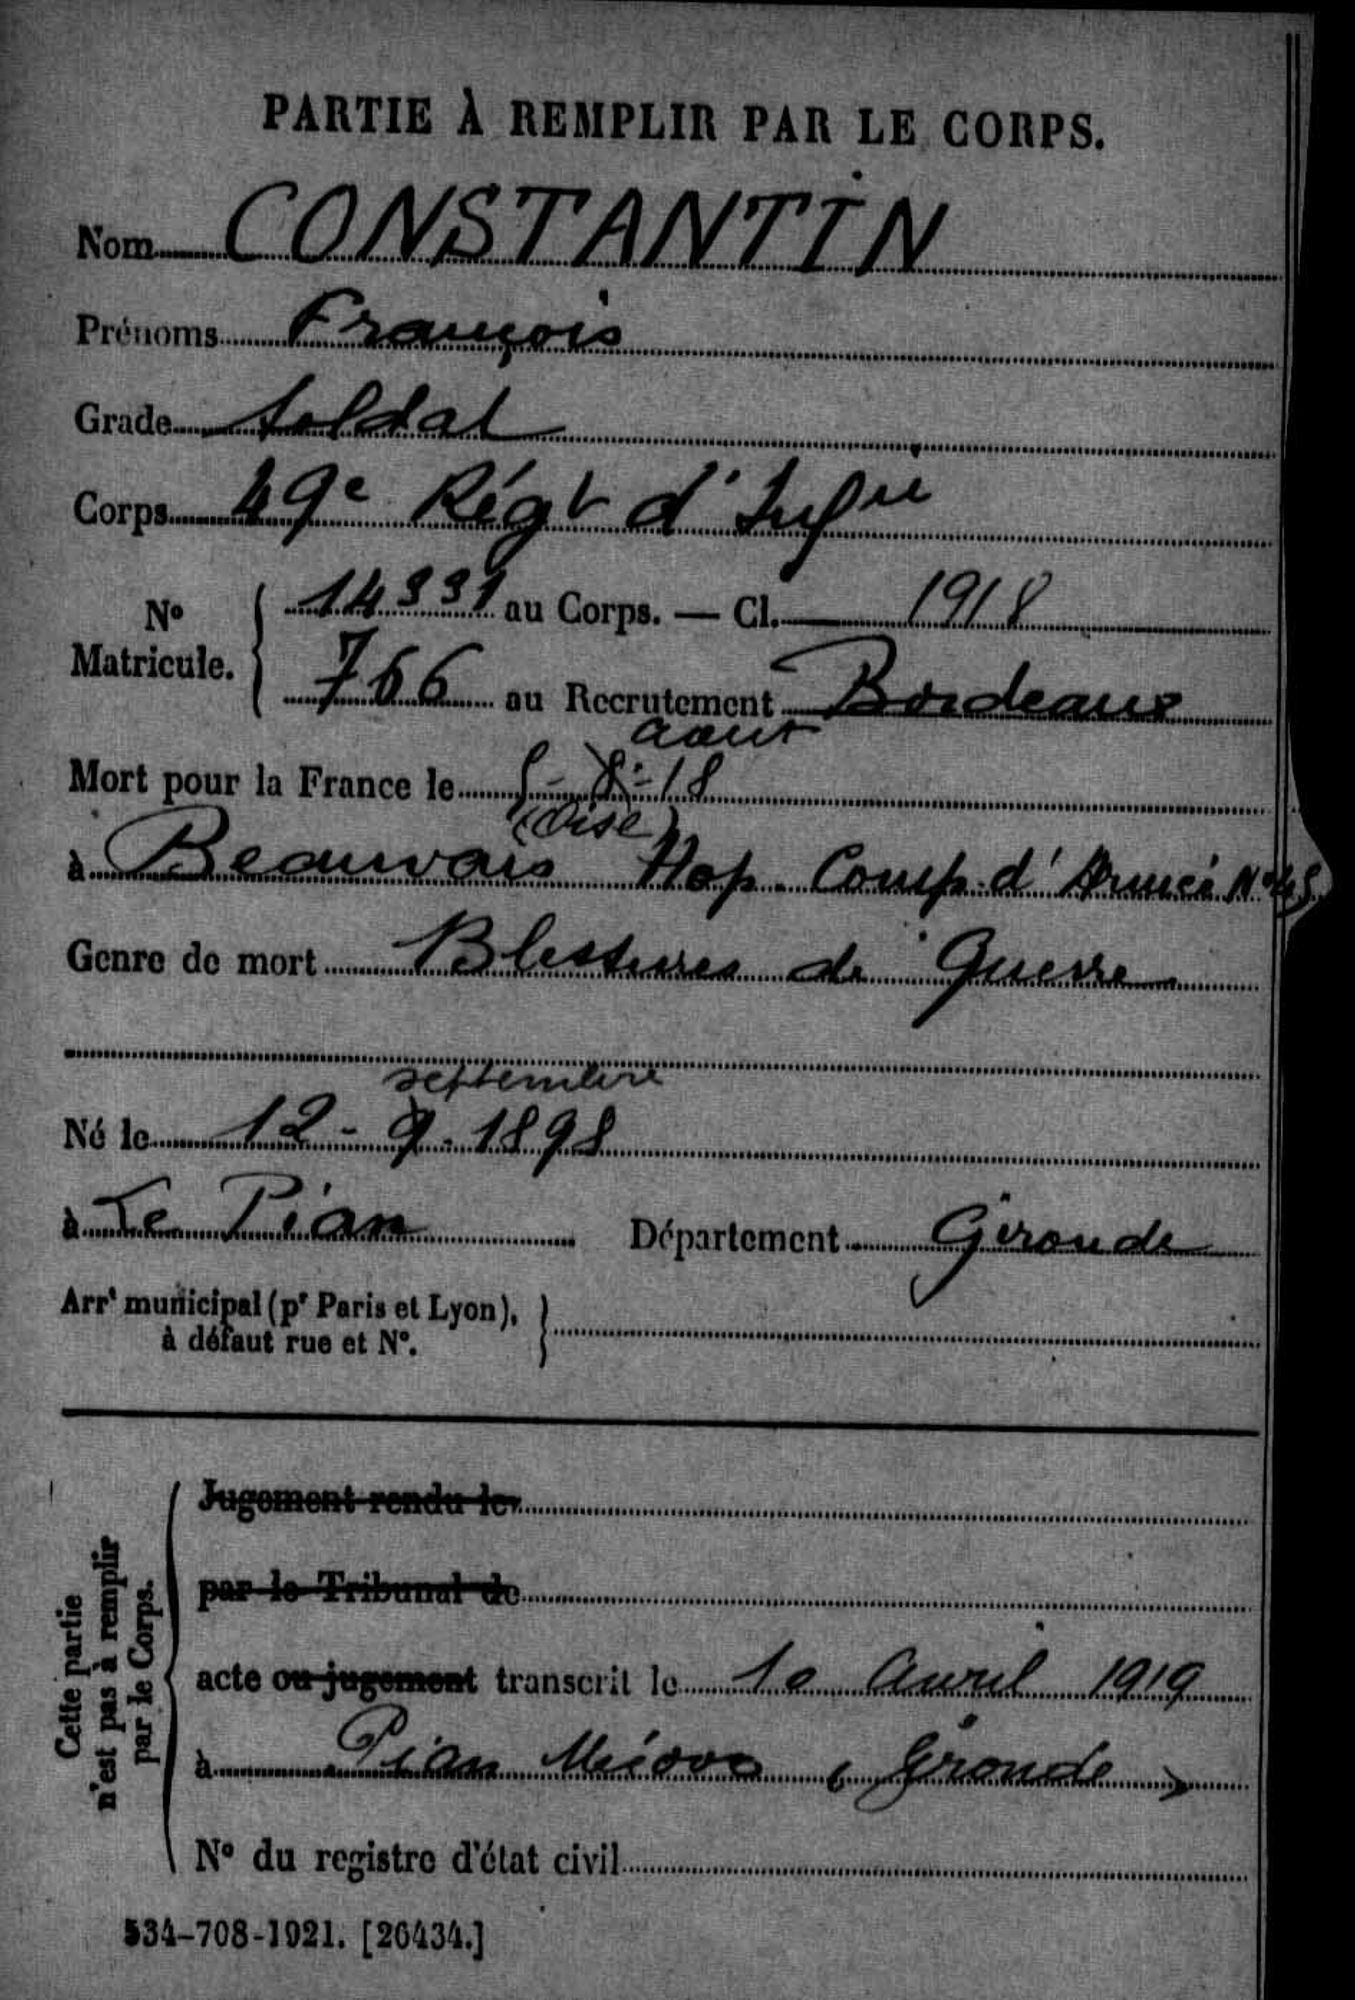 PARTIE À REMPLIR PAR LE CORPS.
Nom CONSTANTIN
Prénoms François
Grade Soldat
Corps 49e Régt d'Infie
No Matricule. 14331 au Corps. — Cl. 1918
766 au Recrutement Bordeaux
aout
Mort pour la France le 5-8-18
(Oise)
à Beauvais Hop. Comp. d'Armée No 45
Genre de mort Blessures de Guerre
septembre
Né le 12-9-1898
à Le Pian Département Gironde
Arrt municipal (pr Paris et Lyon),
à défaut rue et No.
Cette partie
n'est pas à remplir
par le Corps.
Jugement rendu le
par le Tribunal de
acte ou jugement transcrit le 10 Avril 1919
à Pian Médoc (Gironde)
No du registre d'état civil
534-708-1921. [26434.]